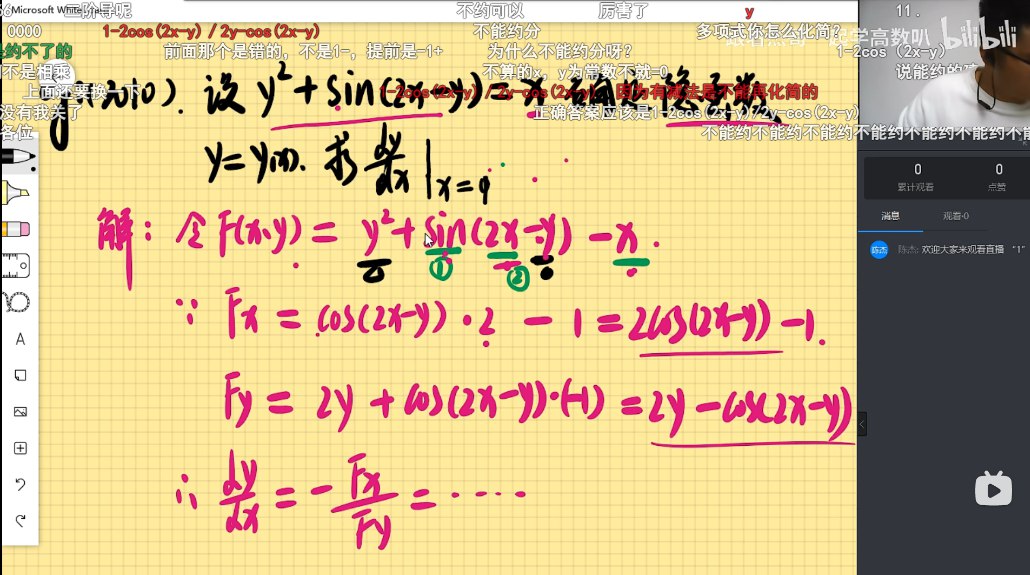 Microsoft White
二阶导呢
不约可以
厉害了
y
11.
0000
1-2cos(2x-y) / 2y-cos(2x-y)
不能约分
多项式你怎么化简?
约不了的
前面那个是错的，不是1-，提前是-1+
为什么不能约分呀?
1-2cos (2x-y)
bilibili
不是相乘
不算的x，y为常数不就=0
上面还要换一下
因为有减法是不能再化简的
没有我关了
正确答案应该是1-2cos(2x-y)/2y-cos(2x-y)
各位
不能约不能约不能约不能约不能约不能约
设 y²+sin(2x-y)=x 隐函数
y=y(x). 求 dy/dx | x=0
解: 令 F(x,y) = y²+sin(2x-y) -x .
① ②
∵ Fx = cos(2x-y)·2 - 1 = 2cos(2x-y)-1.
Fy = 2y + cos(2x-y)·(-1) = 2y-cos(2x-y)
∴ dy/dx = - Fx/Fy = ·····
0 0
累计观看 点赞
消息 观看·0
陈杰 陈杰: 欢迎大家来观看直播 "1"
A